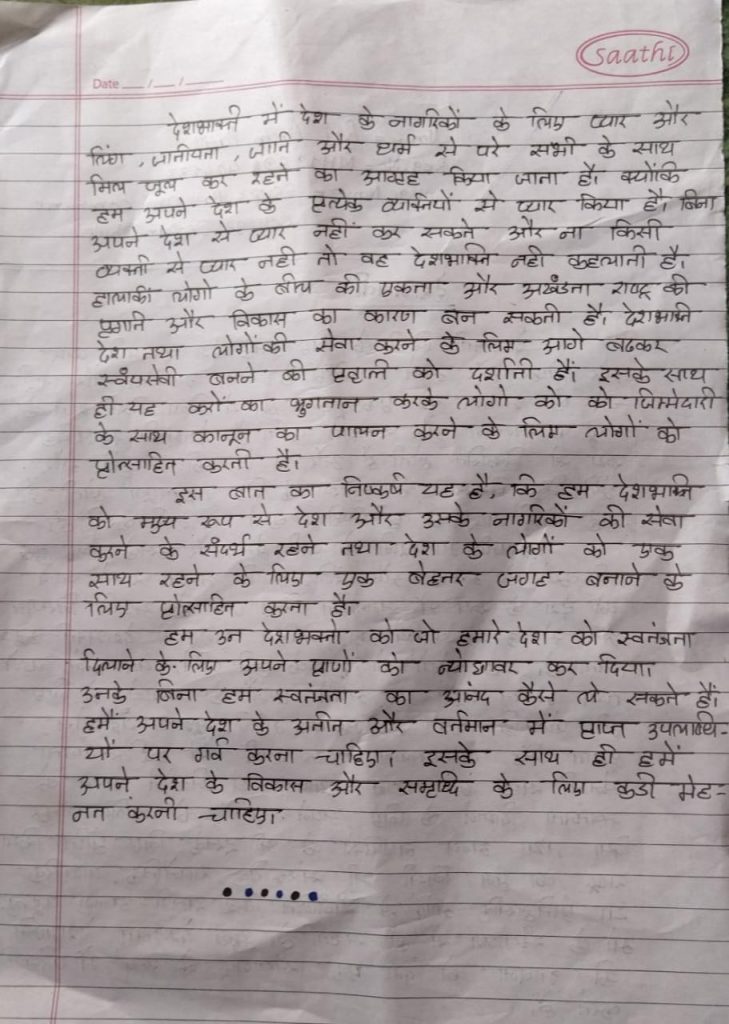 saathi
Date __/__/____
देशभक्ती में देश के नागरिकों के लिए प्यार और
लिंग, जातीयता, जाति और धर्म से परे सभी के साथ
मिल जूल कर रहने का आग्रह किया जाता है। क्योंकि
हम अपने देश के प्रत्येक व्यक्तियों से प्यार किया है, बिना
अपने देश से प्यार नहीं कर सकते और ना किसी
व्यक्ती से प्यार नही तो वह देशभक्ति नही कहलाती है।
हालाकी लोगो के बीच की एकता और अखंडता राष्ट्र की
प्रगति और विकास का कारण बन सकती है, देशभक्ति
देश तथा लोगों की सेवा करने के लिए आगे बढकर
स्वंयसेवी बनने की प्रवाली को दर्शाती हैं। इसके साथ
ही यह करों का भुगतान करके लोगो को को जिम्मेदारी
के साथ कानून का पालन करने के लिए लोगों को
प्रोत्साहित करती है।
इस बात का निष्कर्ष यह है, कि हम देशभक्ति
को मुख्य रूप से देश और उसके नागरिकों की सेवा
करने के संदर्भ रहने तथा देश के लोगों को एक
साथ रहने के लिए एक बेहतर जगह बनाने के
लिए प्रोत्साहित करता है।
हम उन देशभक्तो को जो हमारे देश को स्वतंत्रता
दिलाने के लिए अपने प्राणों को न्योछावर कर दिया।
उनके बिना हम स्वतंत्रता का आनंद कैसे ले सकते हैं।
हमें अपने देश के अतीत और वर्तमान में प्राप्त उपलब्धि-
यों पर गर्व करना चाहिए। इसके साथ ही हमें
अपने देश के विकास और समृध्दि के लिए कडी मेह-
नत करनी चाहिए।